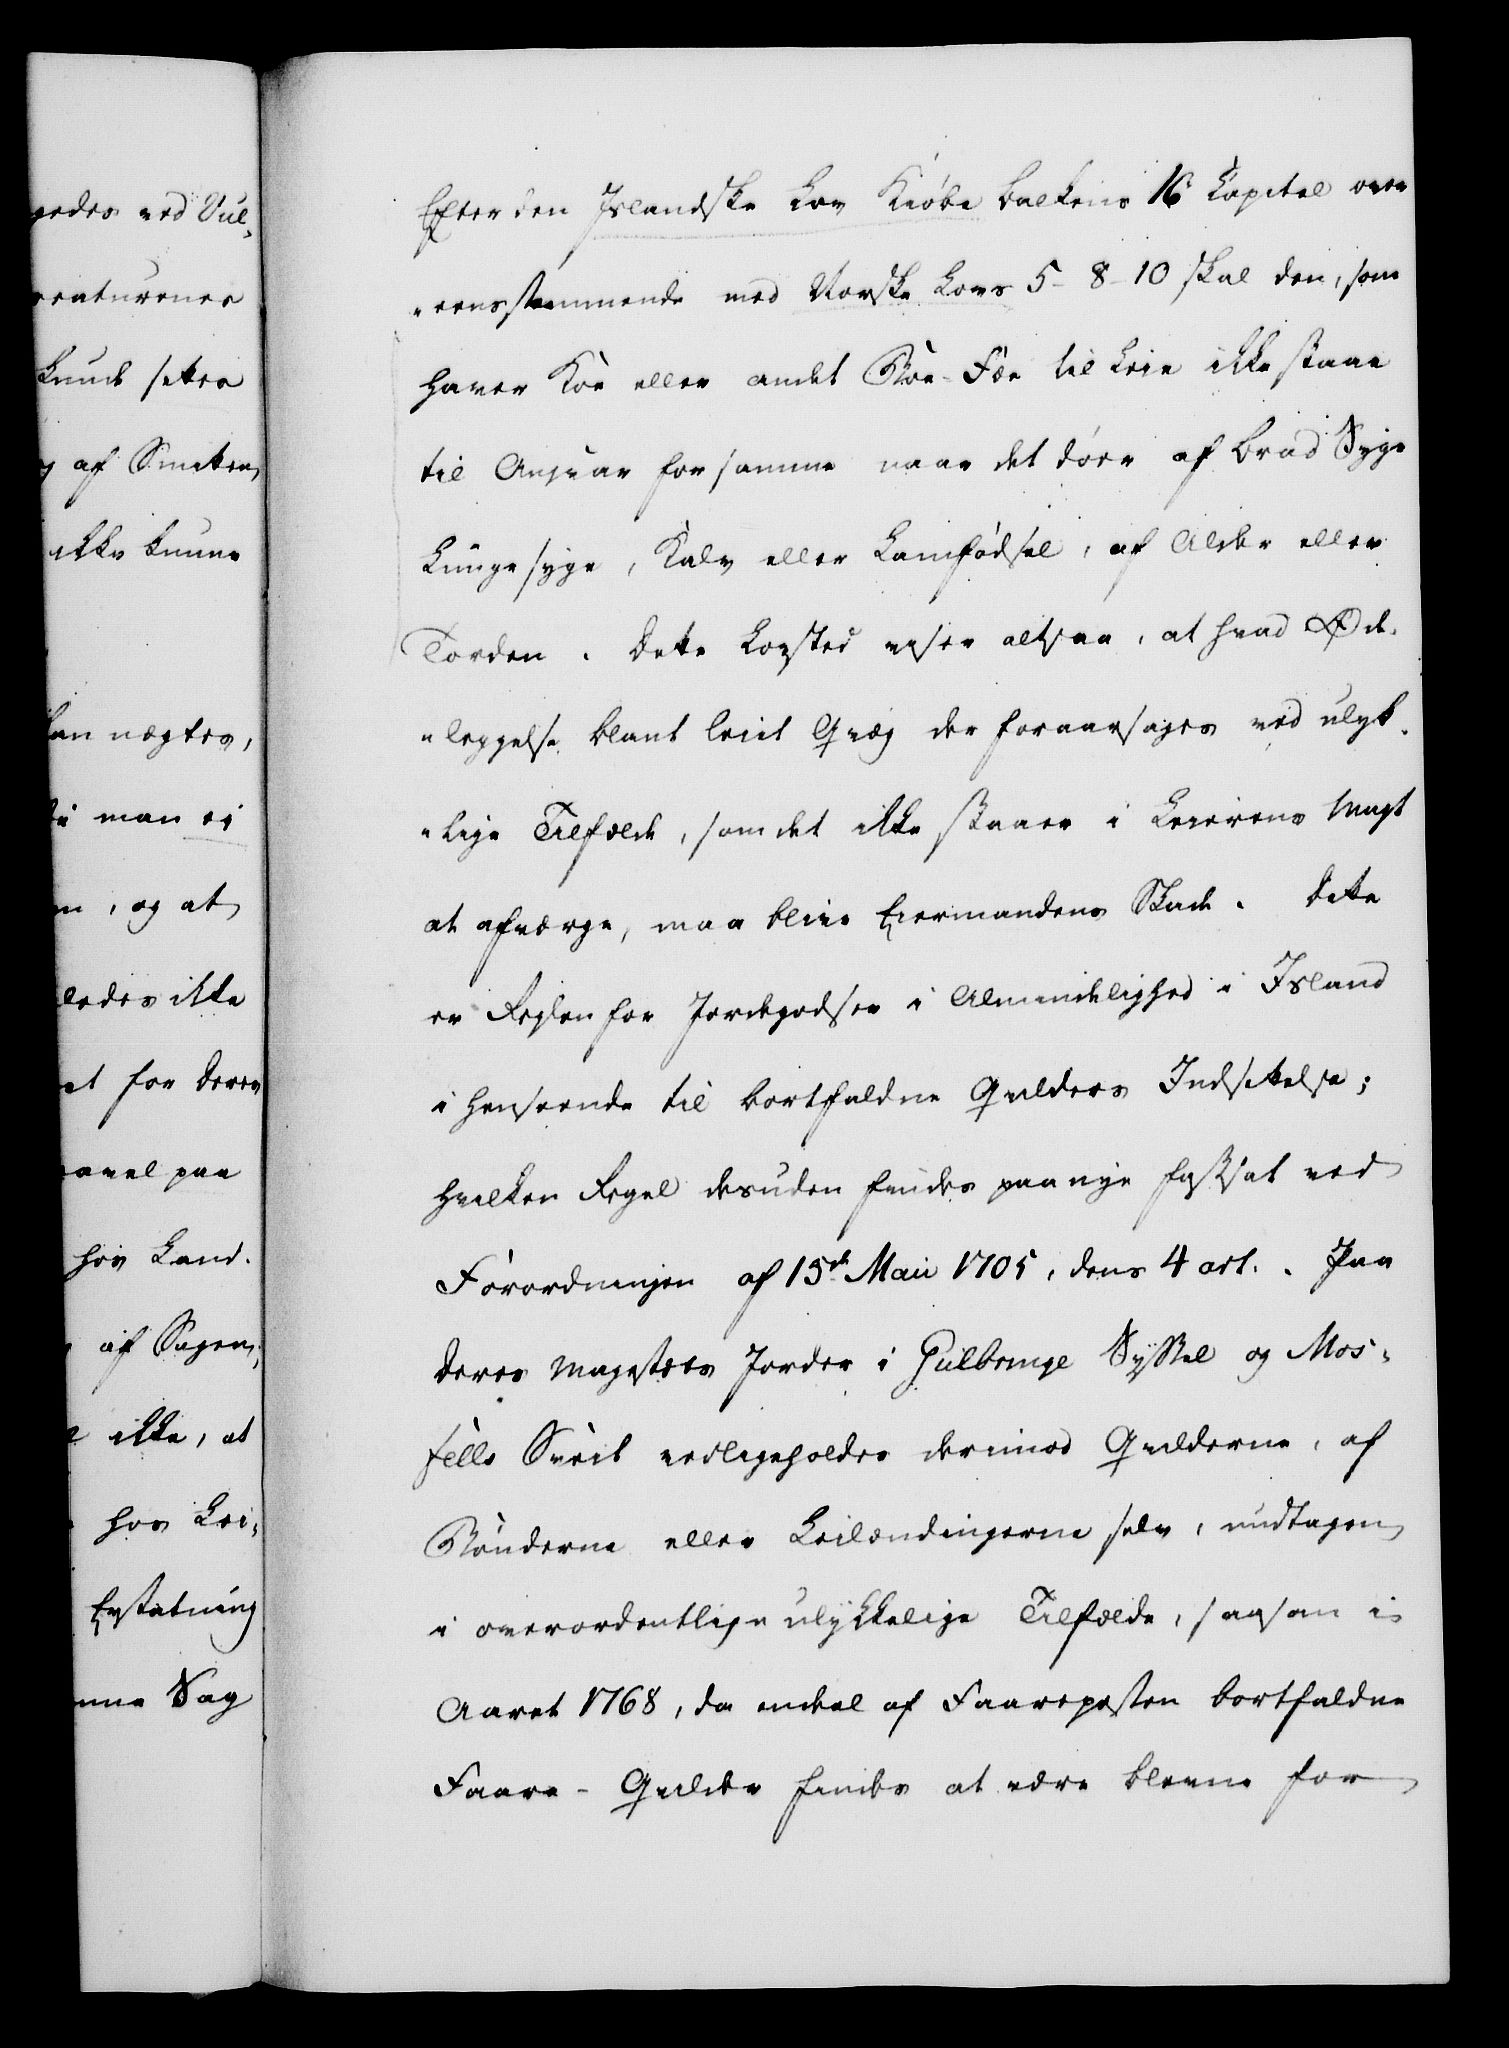 gedes ved Vul-
reaturenes
kunde settes
g af Smitten
ikke kunne
kan nægtes,
di man ei
m, og at
ledes ikke
et for deres
navel paa
hos Land-
af Sagen,
ikke, at
hos Lei-
Erstatning
nne Sag
Efter den Islandske Lov Kiøbe Balkens 16 Capitel over
"eensstemmende med Norske Lovs 5-8-10 skal den, som
haver Køe eller andet Boe-Fæe til Leie ikke staae
til Ansvar for samme naar det døer af brad Syge
Lungesyge, Kalv eller Lamfødsel, af Alder eller
Torden. Dette Lovsted viser altsaa, at hvad Øde-
"leggelse blant leiet Qvæg der foraarsages ved ulyk-
"lige Tilfælde, som det ikke staaer i Leierens Magt
at afværge, maa blive Eiermandens Skade. Dette
er Reglen for Jordegodser i Almindelighed i Island
i henseende til bortfaldne Qvilders Indsettelse;
hvilken Regel desuden findes paa nye fastsat ved
Forordningen af 15de Maii 1705, dens 4 art. Paa
Deres Majestæts Jorder i Gulbringe Syssel og Mos-
fells Sveit vedligeholdes derimod Qvilderne, af
Bønderne eller Leilændingerne selv, undtagen
i overordentlige ulykkelige Tilfælde, saasom i
Aaret 1768, da endeel af Faarepesten bortfaldne
Faare-Qvilder findes at være blevne for